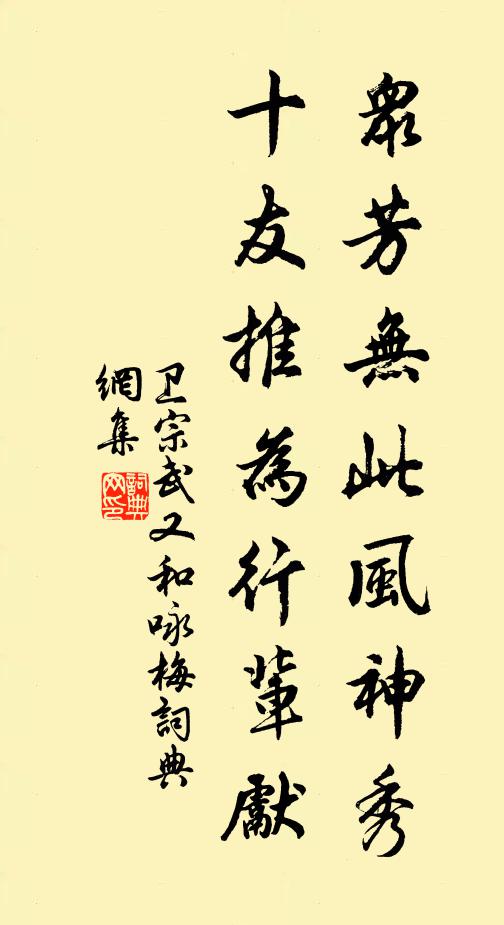 眾芳無此風神秀
十友推為行輩獻
卫宗武又和咏梅詞典
網集
詞典
网印